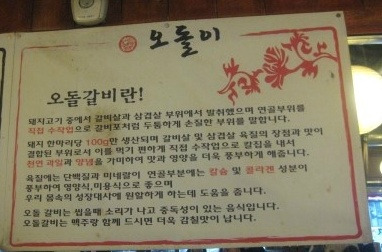 오돌이
오돌갈비란!
돼지고기 중에서 갈비살과 삼겹살 부위에서 발취했으며 연골부위를
직접 수작업으로 갈비포처럼 두툼하게 손질한 부위를 말합니다.
돼지 한마리당 100g만 생산되며 갈비살 및 삼겹살 육질의 장점과 맛이
결합된 부위로서 이를 먹기 편하게 직접 수작업으로 칼집을 내서
천연 과일과 양념을 가미하여 맛과 영양을 더욱 풍부하게 해줍니다.
육질에는 단백질과 미네랄이 연골부분에는 칼슘 및 콜라겐 성분이
풍부하여 영양식,미용식으로 좋으며
우리 몸속의 성장대사에 원할하게 하는데 도움을 줍니다.
오돌 갈비는 씹을때 소리가 나고 중독성이 있는 음식입니다.
오돌 갈비는 맥주랑 함께 드시면 더욱 감칠맛이 납니다.